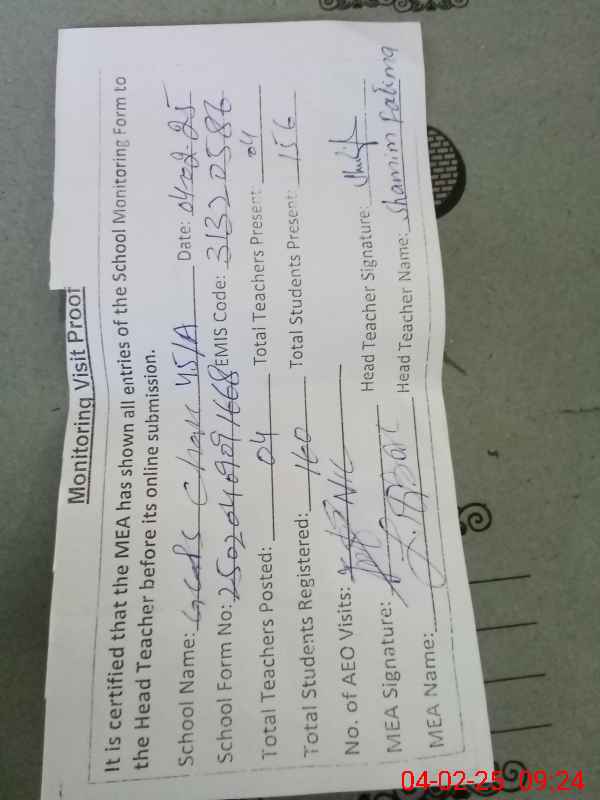 Monitoring Visit Proof
It is certified that the MEA has shown all entries of the School Monitoring Form to
the Head Teacher before its online submission.
School Name: Chak 45/A Date: 04-02-25
School Form No: 25020409091668 EMIS Code: 31320586
Total Teachers Posted: 04 Total Teachers Present: 04
Total Students Registered: 160 Total Students Present: 156
No. of AEO Visits: NIL
MEA Signature: Head Teacher Signature:
MEA Name: Head Teacher Name: Shamim Fatima
04-02-25 09:24